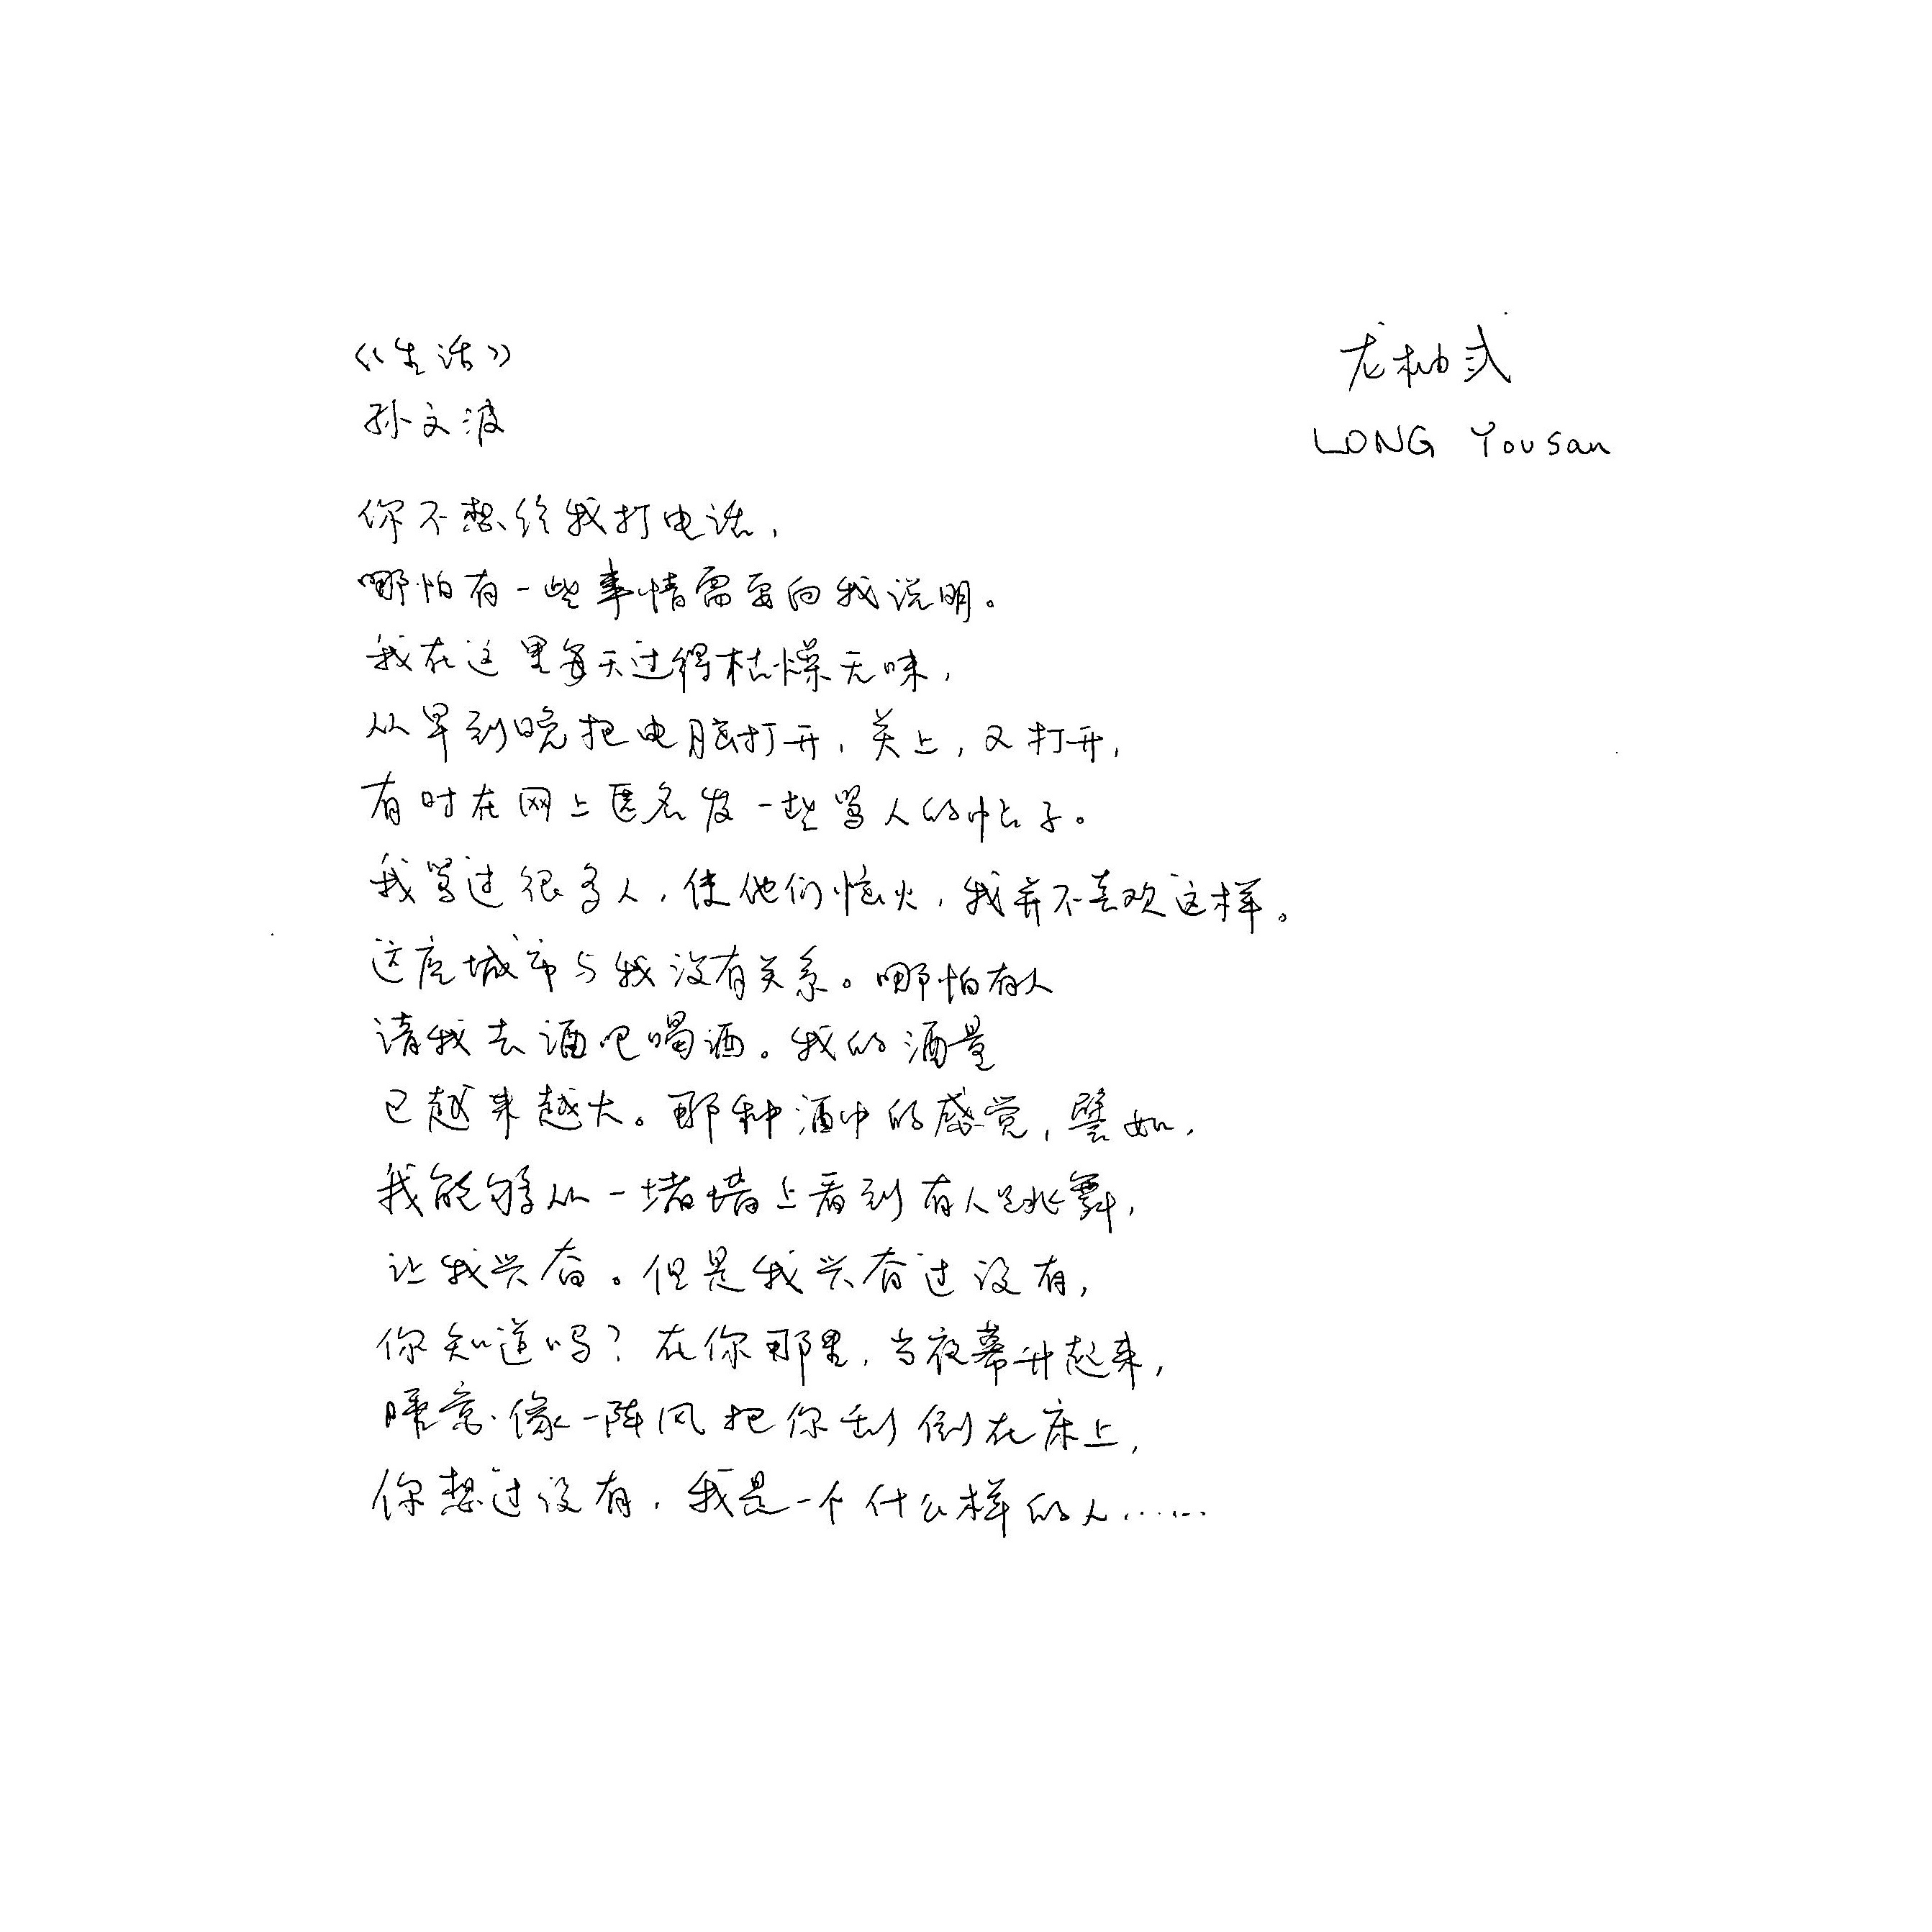 《生活》
孙文波
龙柚弎
LONG Yousan
你不想给我打电话，
哪怕有一些事情需要向我说明。
我在这里每天过得枯燥无味，
从早到晚把电脑打开，关上，又打开，
有时在网上匿名发一些骂人的帖子。
我骂过很多人，使他们恼火，我并不喜欢这样。
这座城市与我没有关系。哪怕有人
请我去酒吧喝酒。我的酒量
已越来越大。那种酒中的感觉，譬如，
我能够从一堵墙上看到有人跳舞，
让我兴奋。但是我兴奋过没有，
你知道吗？在你那里，当夜幕升起来，
睡意像一阵风把你刮倒在床上，
你想过没有，我是一个什么样的人……